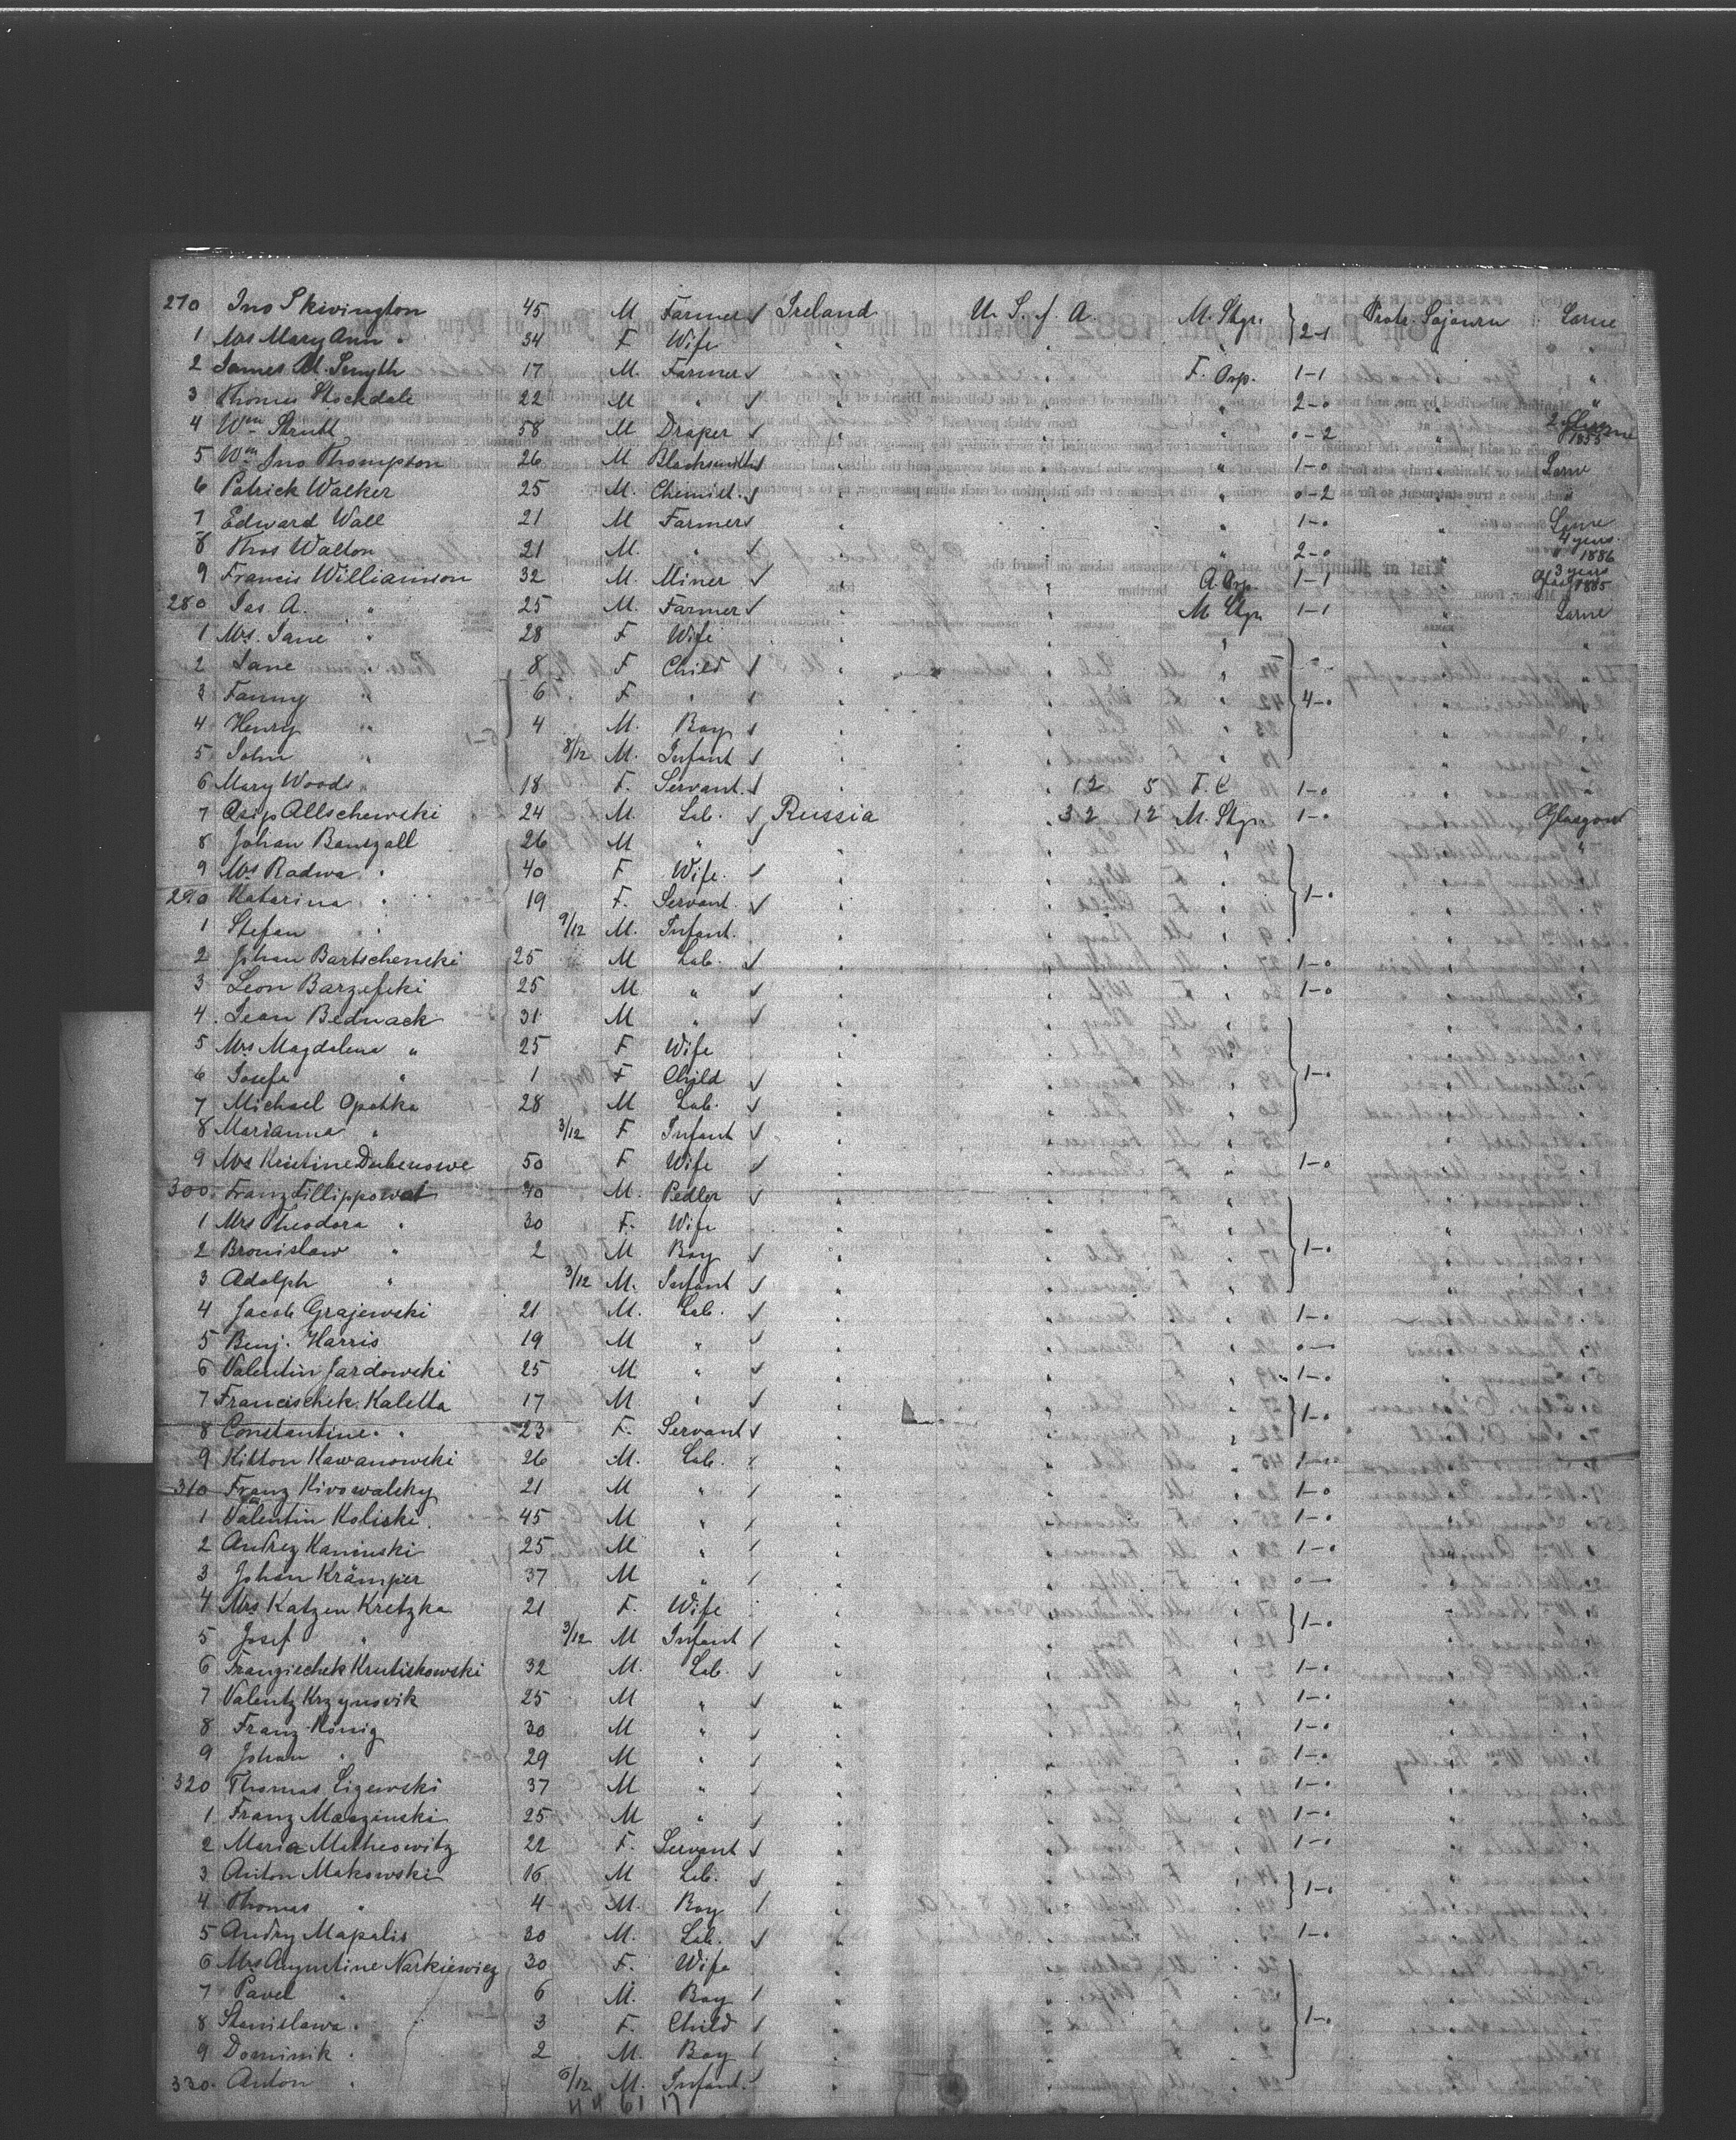 270 Jno Skivington 45 M Farmer Ireland U. S. of A. M. Stgr. 2-1 Protr. Sojourn Larne
1 Mrs Mary Ann " 34 F Wife " " " " "
2 James M. Smyth 17 M. Farmer " " F. Orp. 1-1 " "
3 Thomas Stockdale 22 M " " " " 2-0 " "
4 Wm Strutt 58 M Draper " " " 0-2 " 1885
5 Wm Jno Thompson 26 M Blacksmith " " " 1-0 " Larne
6 Patrick Walker 25 M. Chemist " " " 0-2 " "
7 Edward Wall 21 M Farmer " " " 1-0 " Larne
8 Thos Walton 21 M. " " " " 2-0 " 4 years 1886
9 Francis Williamson 32 M. Miner " " A. Orp. 1-1 " 3 years Glasgow 1885
280 Jas. A. " 25 M. Farmer " " M. Stgr. 1-1 " Larne
1 Mrs. Jane " 28 F Wife " " " " "
2 Jane " 8 F Child " " " " "
3 Fanny " 6 F " " " " 4-0 " "
4 Henry " 4 M. Boy " " " " "
5 John " 8/12 M. Infant " " " " "
6 Mary Woods 18 F. Servant " 12 5 F. C 1-0 " "
7 Osip Allschewski 24 M. Lab. Russia 32 12 M. Stgr. 1-0 " Glasgow
8 Johan Banszall 26 M " " " " " "
9 Mrs Radwa " 40 F Wife. " " " " "
290 Katarina " 19 F. Servant " " " 1-0 " "
1 Stefan " 9/12 M. Infant. " " " " "
2 Johan Bartschenski 25 M Lab. " " " 1-0 " "
3 Leon Barzefski 25 M " " " " 1-0 " "
4 Jean Bednack 31 M " " " " " "
5 Mrs Magdalena " 25 F Wife " " " " "
6 Josefa " 1 F Child " " " 1-0 " "
7 Michael Opatka 28 M Lab. " " " " "
8 Marianna " 3/12 F Infant " " " " "
9 Mrs Kristine Dubenowe 50 F Wife " " " 1-0 " "
300 Franz Fillippowat 40 M. Pedler " " " " "
1 Mrs Theodora " 30 F. Wife " " " " "
2 Bronislaw " 2 M Boy " " " 1-0 " "
3 Adolph " 3/12 M. Infant " " " " "
4 Jacob Grajewski 21 M. Lab. " " " 1-0 " "
5 Benj. Harris 19 M " " " " " "
6 Valentin Jardowski 25 M " " " " 1-0 " "
7 Francischek Kaletta 17 M " " " " 1-0 " "
8 Constantine " 23 F. Servant " " " " "
9 Kitton Kawanowski 26 M. Lab. " " " 1-0 " "
310 Franz Kivowalsky 21 M " " " " 1-0 " "
1 Valentin Koliski 45 M " " " " 1-0 " "
2 Andrez Kaminski 25 M " " " " 1-0 " "
3 Johan Krämper 37 M " " " " " "
4 Mrs Katzen Kretzka 21 F. Wife " " " 1-0 " "
5 Josef " 3/12 M Infant " " " " "
6 Franziechek Krutiskowski 32 M. Lab. " " " 1-0 " "
7 Valentz Krzynsvik 25 M " " " " 1-0 " "
8 Franz König 30 M " " " " 1-0 " "
9 Johan " 29 M " " " " 1-0 " "
320 Thomas Lizewski 37 M " " " " 1-0 " "
1 Franz Maszinski 25 M " " " " 1-0 " "
2 Maria Matheowitz 22 F. Servant " " " 1-0 " "
3 Anton Makowski 16 M Lab. " " " 1-0 " "
4 Thomas " 4 M. Boy " " " " "
5 Andry Mapalis 30 M. Lab. " " " 1-0 " "
6 Mrs Augustine Narkiewicz 30 F. Wife " " " " "
7 Pavel " 6 M. Boy " " " " "
8 Stanislawa " 3 F. Child " " " 1-0 " "
9 Dominik " 2 M. Boy " " " " "
330 Anton " 6/12 M. Infant. " " " " "
44 61 17